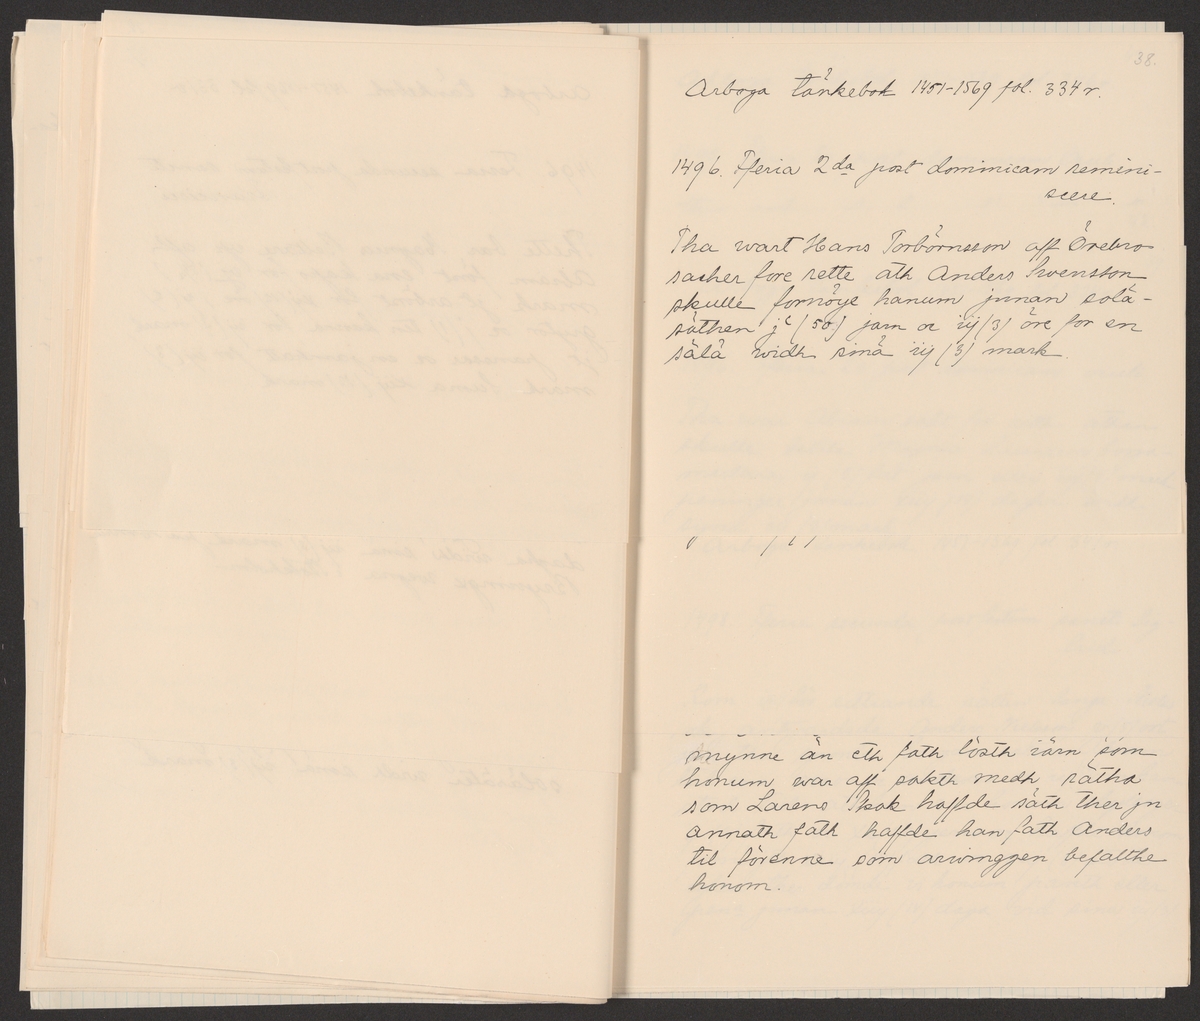 38.
Arboga tänkebok 1451-1569 fol. 334 r.
1496. Fferia 2da post dominicam remini-
scere.
Tha wart Hans Torbörnsson aff Örebro
sacher fore rette ath Anders Swensson
skulle fornöye hanum jnnan solä-
säthen jc (50) jarn oc iij (3) öre for en
sälä widh sinä iij (3) mark.
mynne än eth fath lösth iärn som
honum war aff sakth medh rätha
som Larens Skak haffde säth ther jn
annath fath haffde han fath Anders
til förenne som arwinggen befalthe
honom.